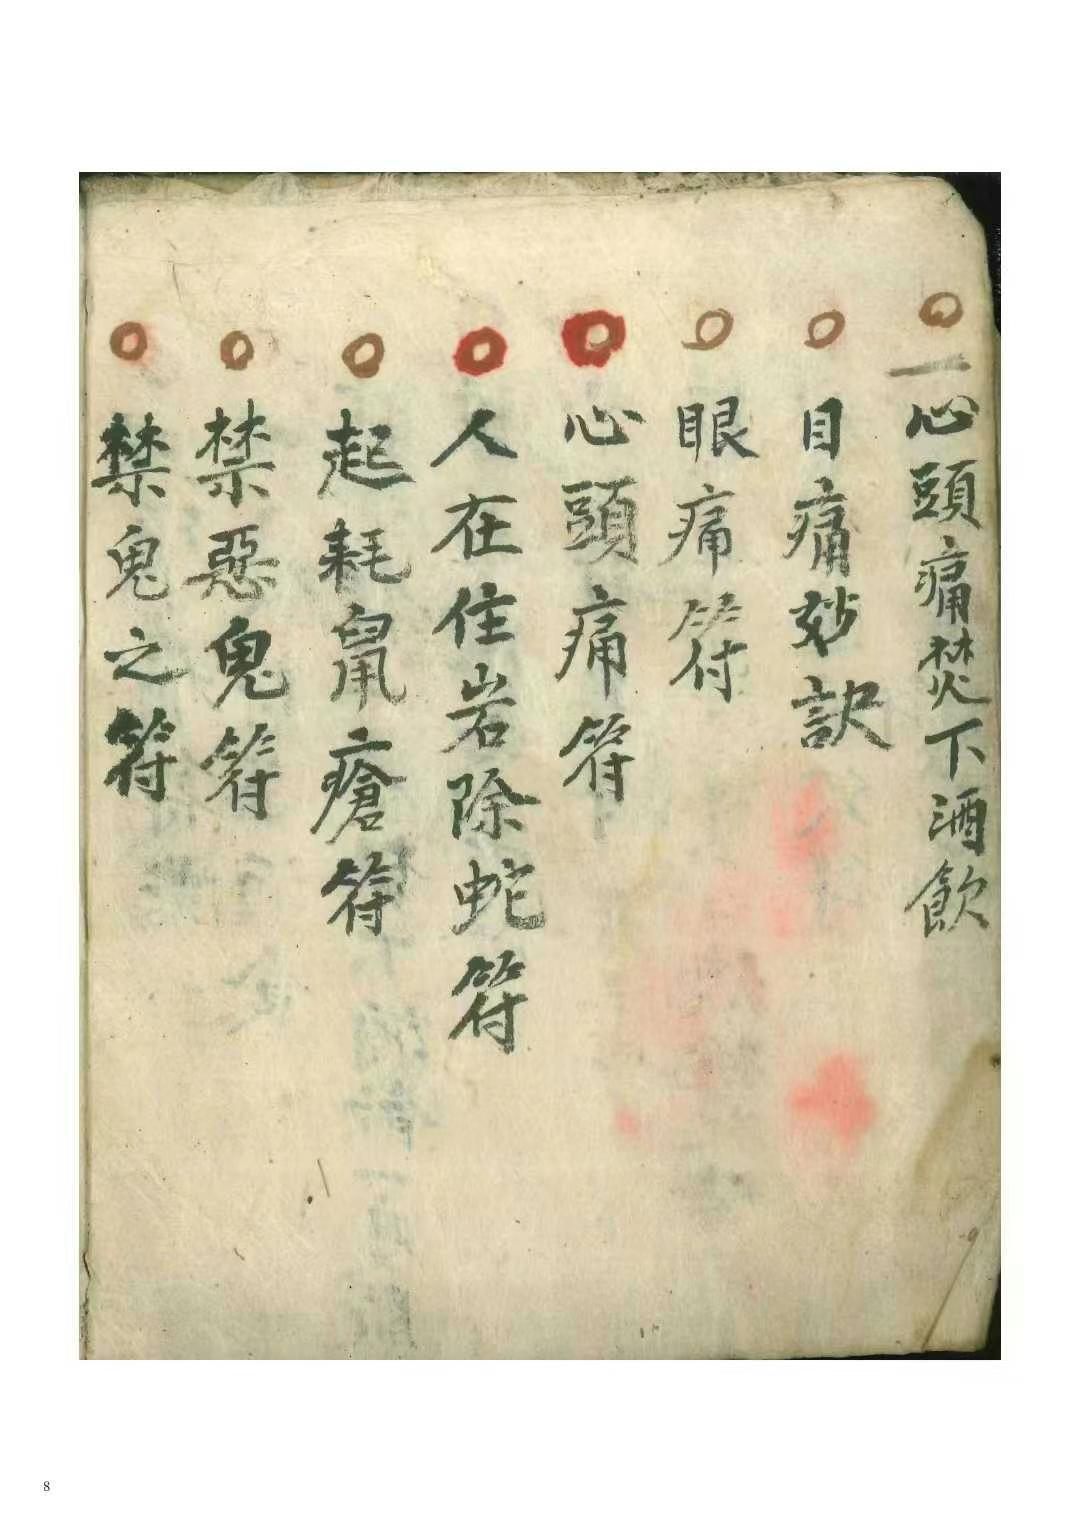 一心頭痛焚下酒飲
目痛妙訣
眼痛符
心頭痛符
人在住岩除蛇符
起耗鼠瘡符
禁惡鬼符
禁鬼之符
8